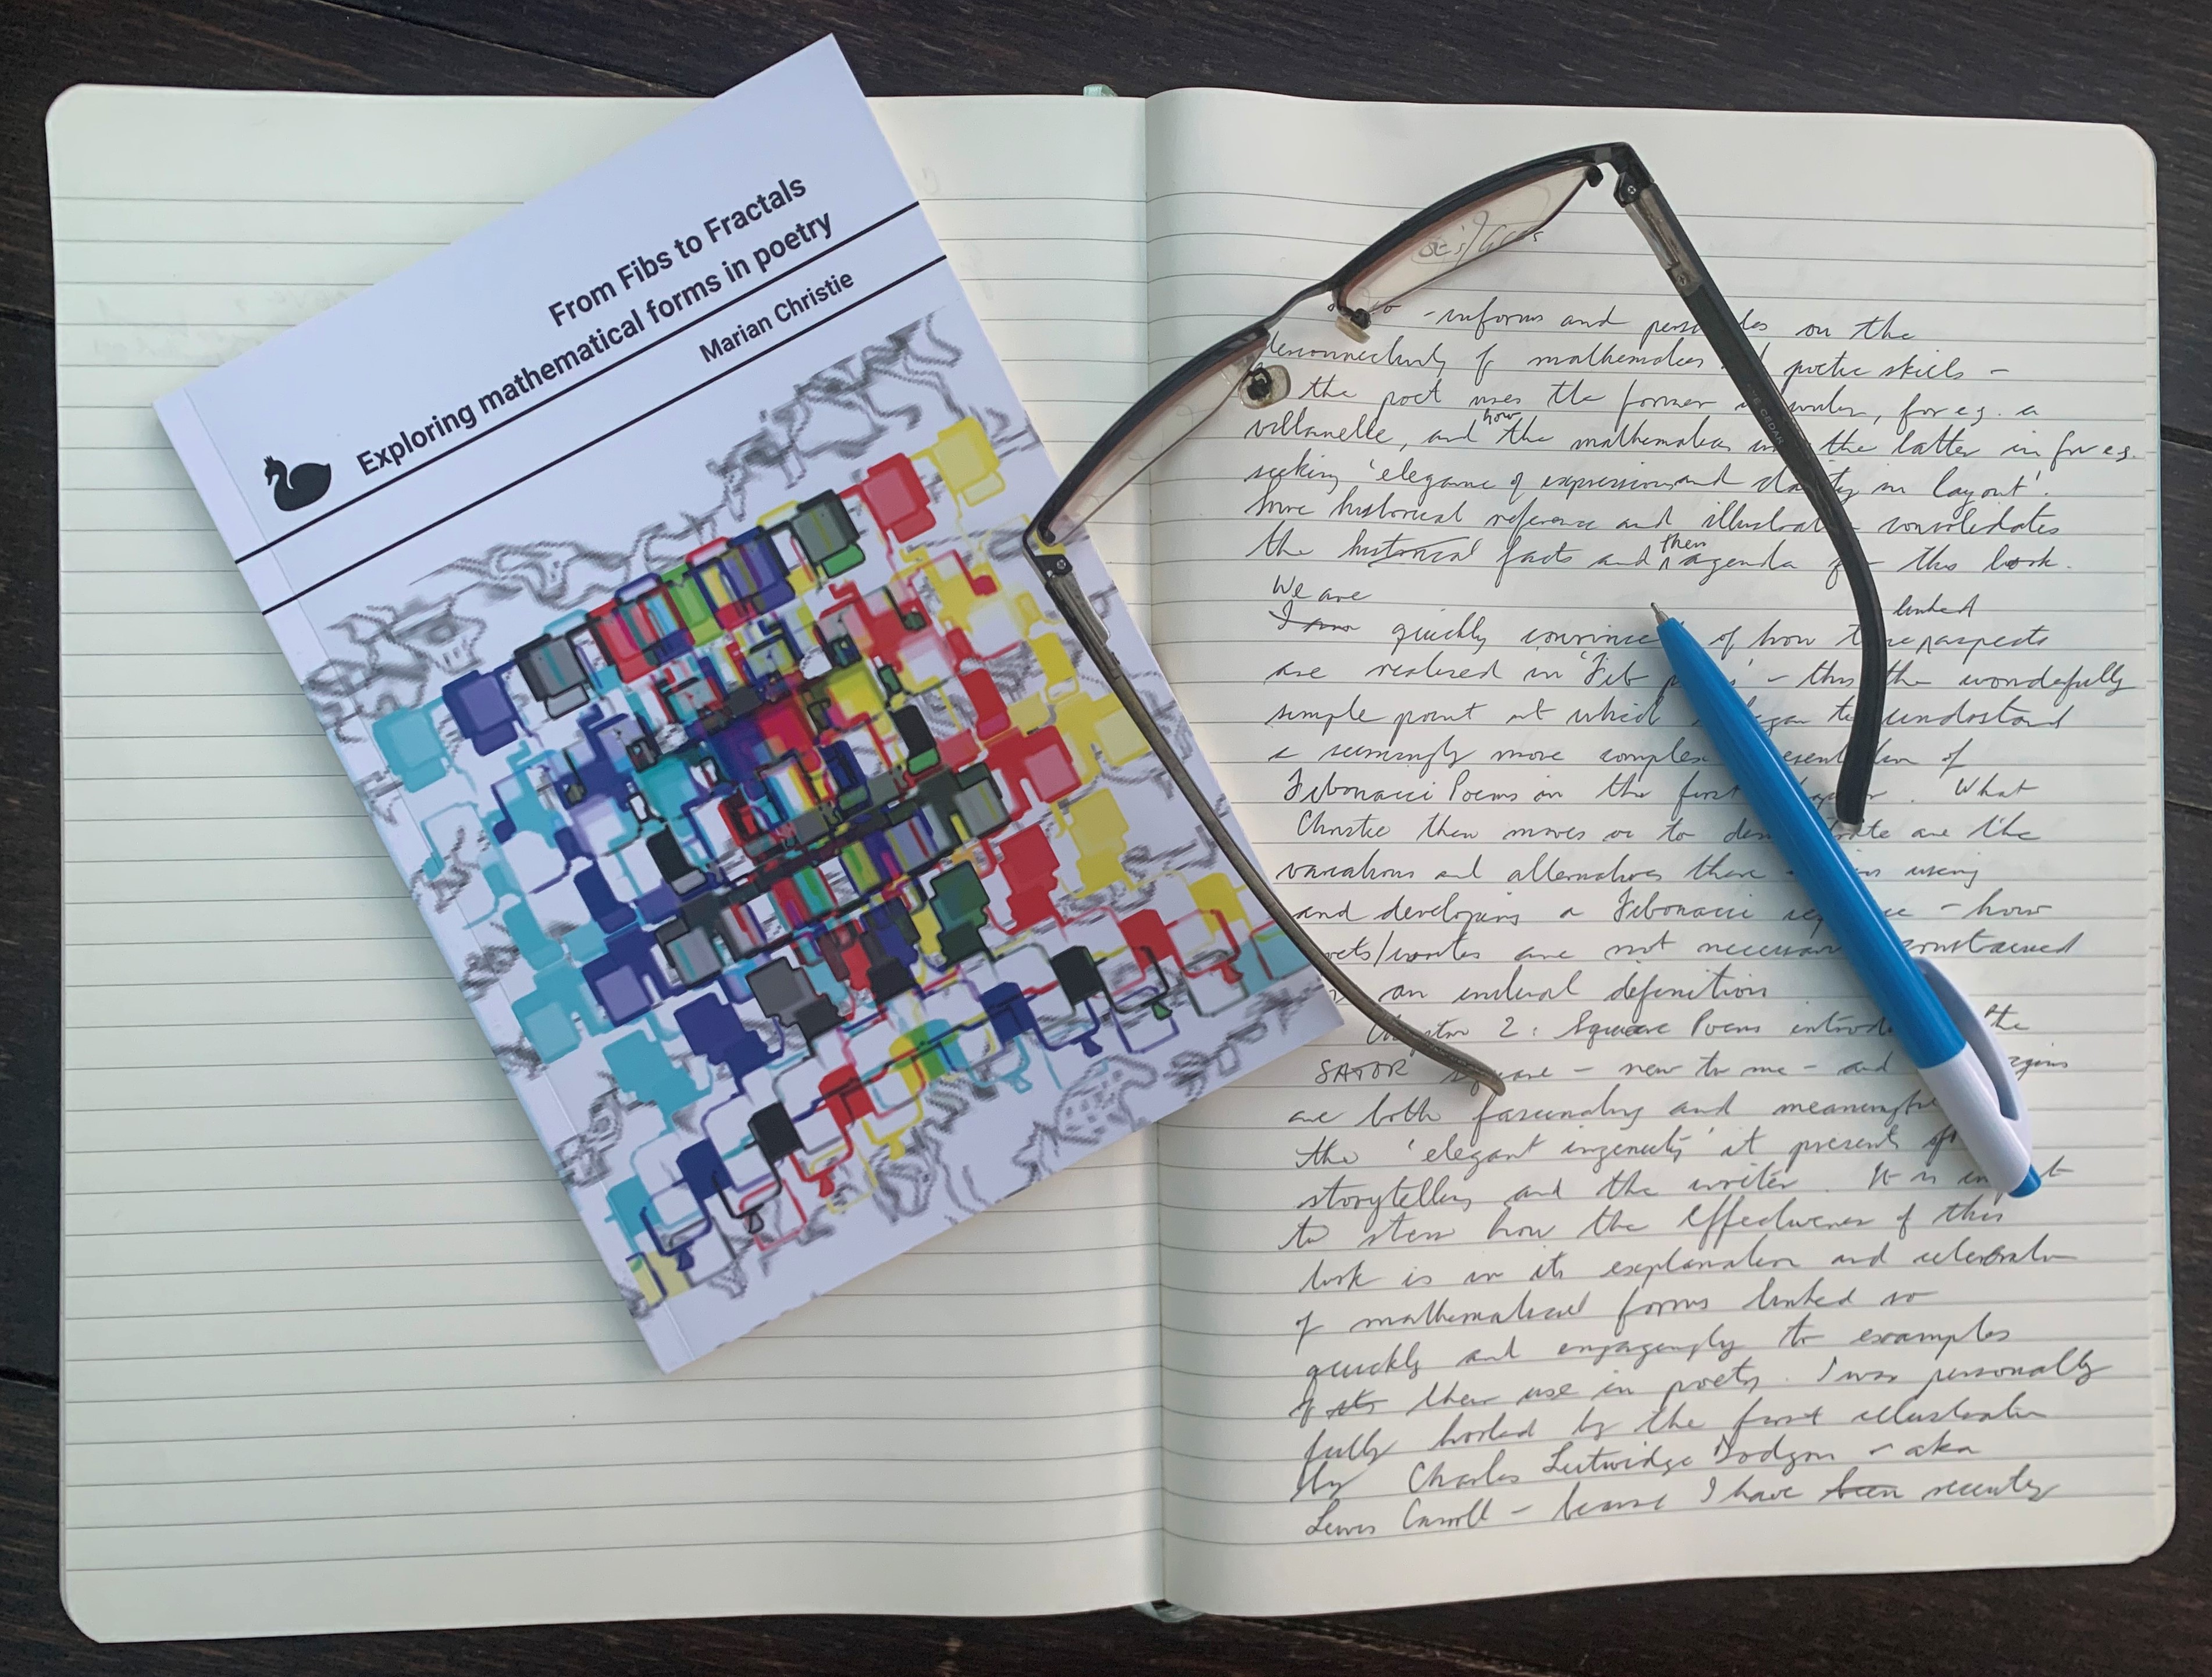 From Fibs to Fractals
Exploring mathematical forms in poetry
Marian Christie
- informs and on the
of mathematics poetic skills -
the poet uses the former, for eg. a
villanelle, and how the mathematician the latter in for eg.
seeking 'elegance of expression and clarity in layout'.
Some historical reference and consolidates
the historical facts and then agenda this book.
We are
I am quickly of how linked aspects
are realised in 'Fib ' - this the wonderfully
simple point at which to understand
a seemingly more complex of
Fibonacci Poems in the first . What
Christie then moves on to are the
variations and alternatives there using
and developing a Fibonacci - how
are not constrained
an definition
2: Square Poems the
SATOR square - new to me - and
are both fascinating and
the 'elegant ingenuity' it presents
storytelling and the writer. It is
to stress how the effectiveness of this
book is in its explanation and celebration
of mathematical forms linked so
quickly and engagingly to examples
of its their use in poetry. I was personally
fully hooked by the first illustration
by Charles Lutwidge Dodgson - aka
Lewis Carroll - because I have been recently